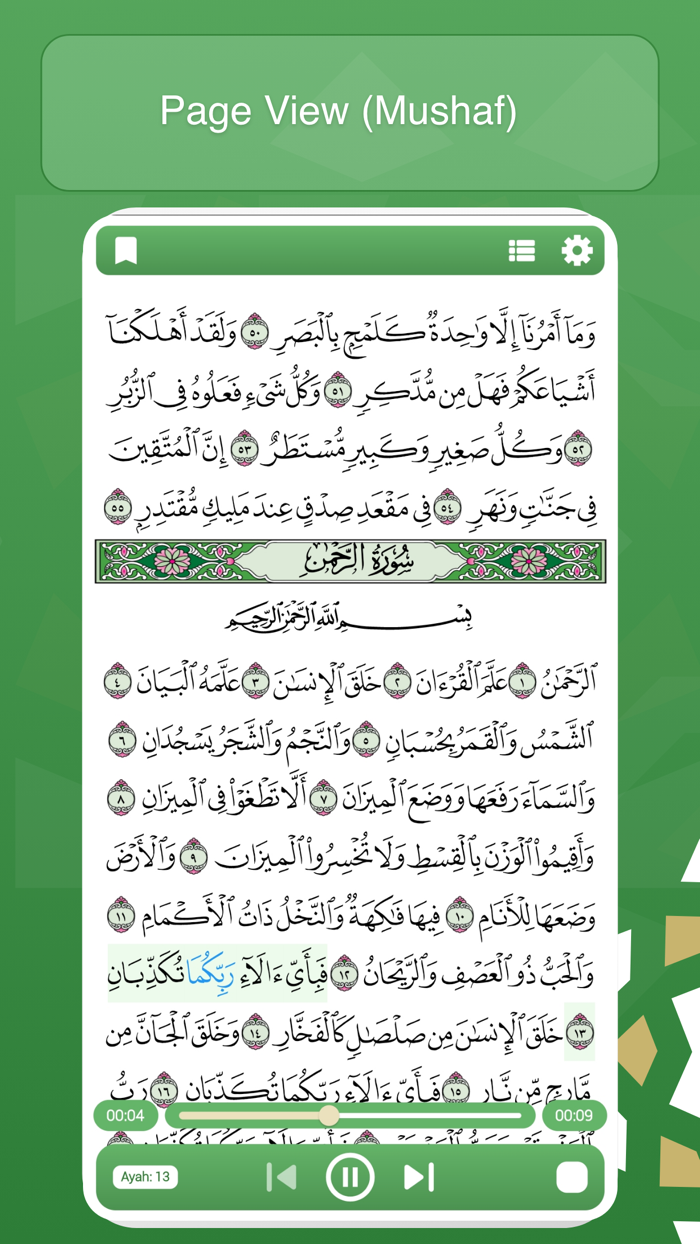 Page View (Mushaf)
وَمَآ أَمْرُنَآ إِلَّا وَٰحِدَةٌ كَلَمْحٍۭ بِٱلْبَصَرِ ٥٠ وَلَقَدْ أَهْلَكْنَآ
أَشْيَاعَكُمْ فَهَلْ مِن مُّدَّكِرٍ ٥١ وَكُلُّ شَىْءٍ فَعَلُوهُ فِى ٱلزُّبُرِ
٥٢ وَكُلُّ صَغِيرٍ وَكَبِيرٍ مُّسْتَطَرٌ ٥٣ إِنَّ ٱلْمُتَّقِينَ
فِى جَنَّٰتٍ وَنَهَرٍ ٥٤ فِى مَقْعَدِ صِدْقٍ عِندَ مَلِيكٍ مُّقْتَدِرٍۭ ٥٥
سُورَةُ الرَّحْمٰن
بِسْمِ ٱللَّهِ ٱلرَّحْمَٰنِ ٱلرَّحِيمِ
ٱلرَّحْمَٰنُ ١ عَلَّمَ ٱلْقُرْءَانَ ٢ خَلَقَ ٱلْإِنسَٰنَ ٣ عَلَّمَهُ ٱلْبَيَانَ ٤
ٱلشَّمْسُ وَٱلْقَمَرُ بِحُسْبَانٍ ٥ وَٱلنَّجْمُ وَٱلشَّجَرُ يَسْجُدَانِ ٦
وَٱلسَّمَآءَ رَفَعَهَا وَوَضَعَ ٱلْمِيزَانَ ٧ أَلَّا تَطْغَوْا۟ فِى ٱلْمِيزَانِ ٨
وَأَقِيمُوا۟ ٱلْوَزْنَ بِٱلْقِسْطِ وَلَا تُخْسِرُوا۟ ٱلْمِيزَانَ ٩ وَٱلْأَرْضَ
وَضَعَهَا لِلْأَنَامِ ١٠ فِيهَا فَٰكِهَةٌ وَٱلنَّخْلُ ذَاتُ ٱلْأَكْمَامِ ١١
وَٱلْحَبُّ ذُو ٱلْعَصْفِ وَٱلرَّيْحَانُ ١٢ فَبِأَىِّ ءَالَآءِ رَبِّكُمَا تُكَذِّبَانِ
١٣ خَلَقَ ٱلْإِنسَٰنَ مِن صَلْصَٰلٍ كَٱلْفَخَّارِ ١٤ وَخَلَقَ ٱلْجَآنَّ مِن
مَّارِجٍ مِّن نَّارٍ ١٥ فَبِأَىِّ ءَالَآءِ رَبِّكُمَا تُكَذِّبَانِ ١٦ رَبُّ
00:04 00:09
Ayah: 13